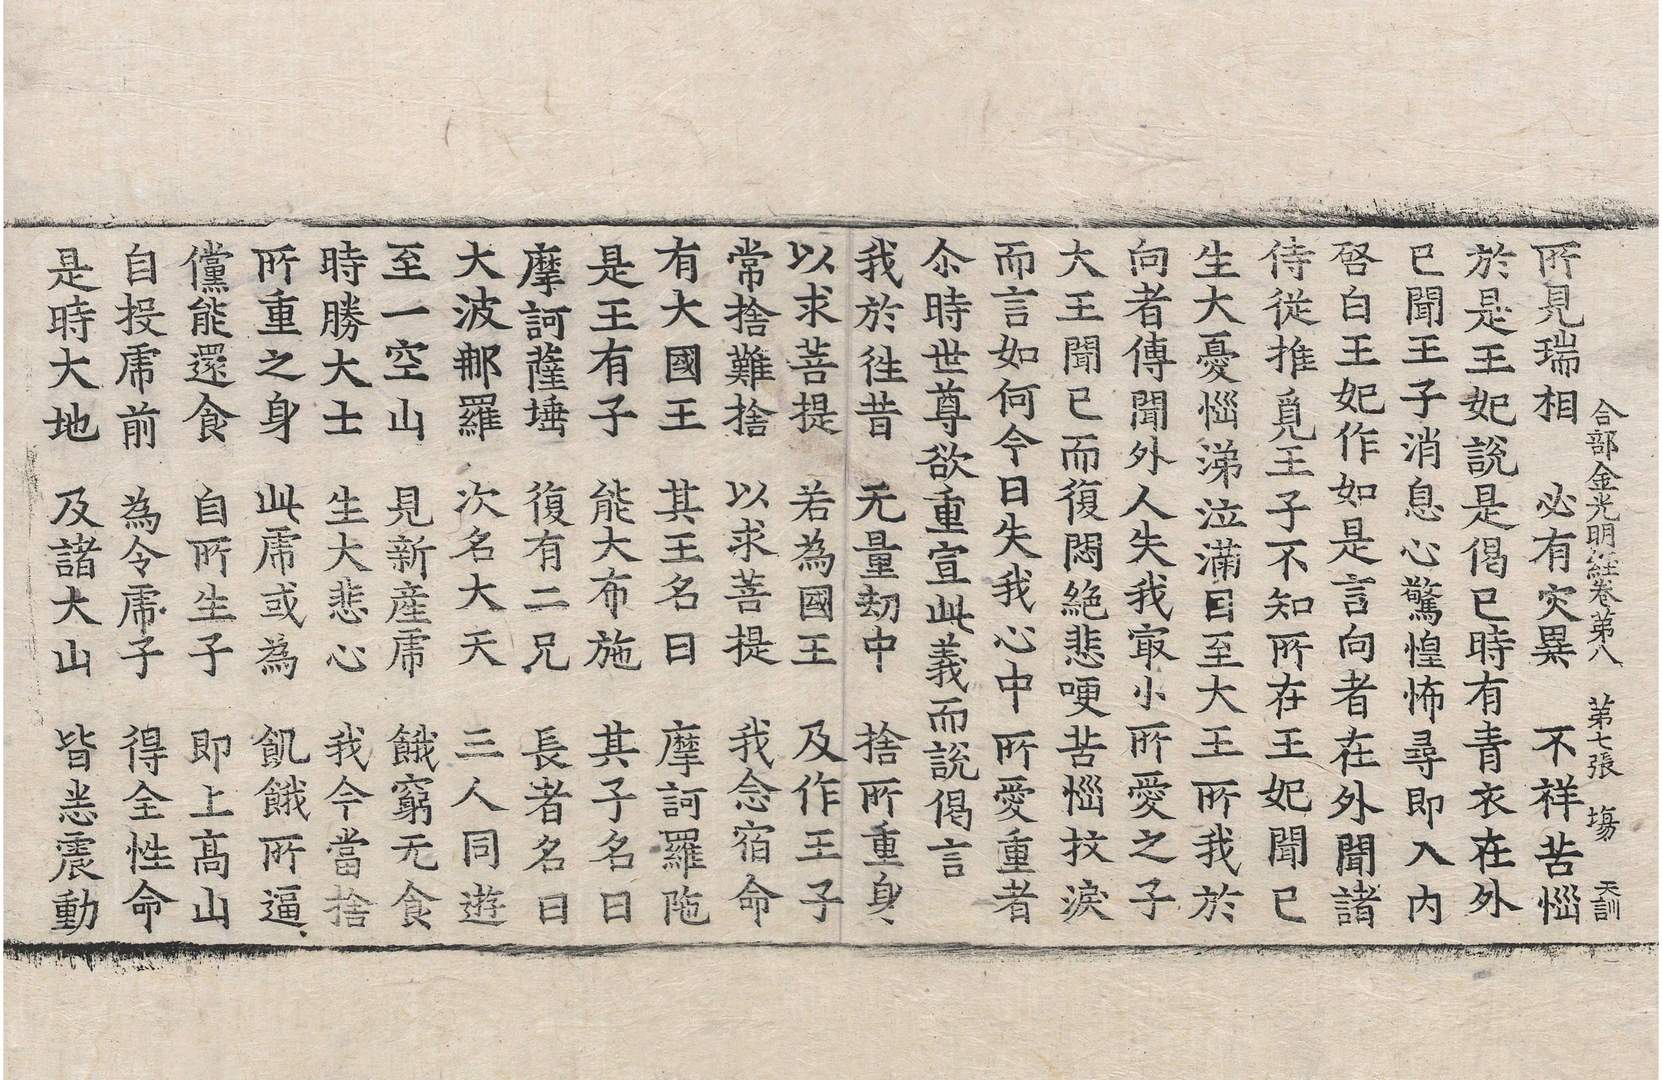 合部金光明經卷第八　第七張　塲　天訓
所見瑞相　必有灾異　不祥苦惱
於是王妃說是偈已時有青衣在外
已聞王子消息心驚惶怖尋即入內
啓白王妃作如是言向者在外聞諸
侍從推覓王子不知所在王妃聞已
生大憂惱涕泣滿目至大王所我於
向者傳聞外人失我冣小所愛之子
大王聞已而復悶絕悲哽苦惱抆淚
而言如何今日失我心中所愛重者
尒時世尊欲重宣此義而說偈言
我於往昔　无量劫中　捨所重身
以求菩提　若為國王　及作王子
常捨難捨　以求菩提　我念宿命
有大國王　其王名曰　摩訶羅陁
是王有子　能大布施　其子名曰
摩訶薩埵　復有二兄　長者名曰
大波那羅　次名大天　三人同遊
至一空山　見新產虎　飢窮无食
時勝大士　生大悲心　我今當捨
所重之身　此虎或為　飢餓所逼
儻能還食　自所生子　即上高山
自投虎前　為令虎子　得全性命
是時大地　及諸大山　皆悉震動